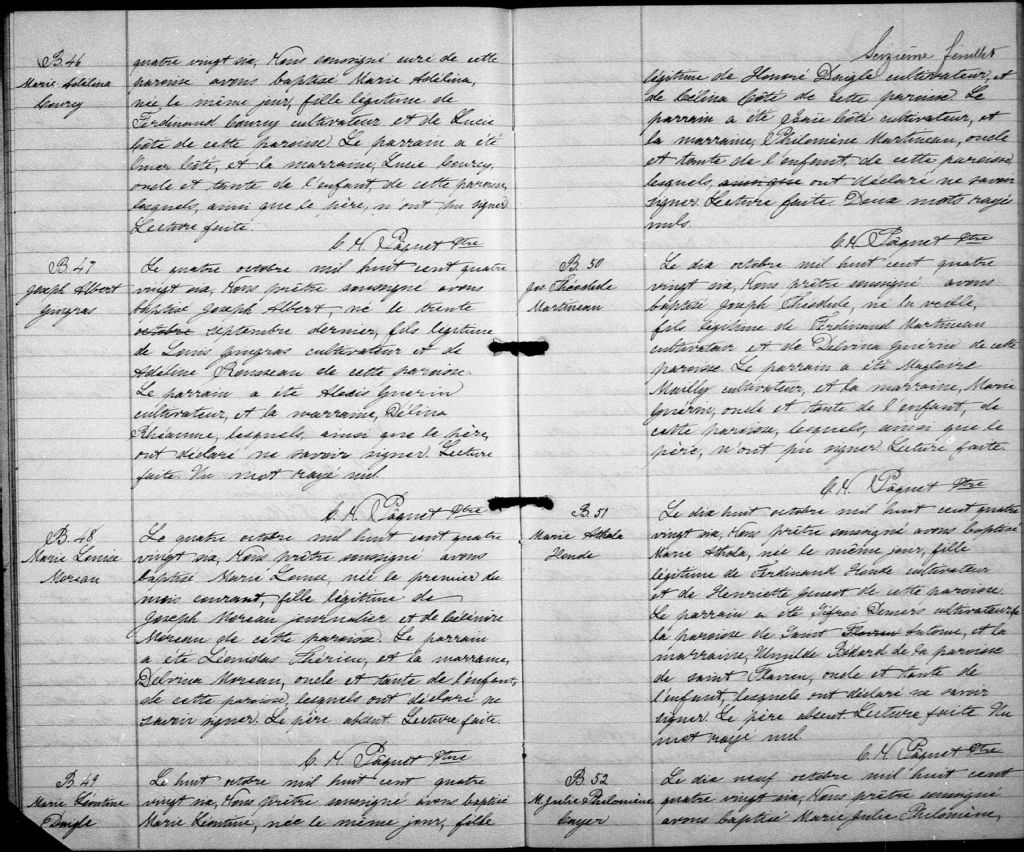 B. 46
Marie Adélina
Courcy
quatre vingt six, Nous soussigné curé de cette
paroisse avons baptisé Marie Adélina,
née le même jour, fille légitime de
Ferdinand Courcy cultivateur et de Lucie
Côté de cette paroisse. Le parrain a été
Côté, et la marraine, Lucie Courcy,
oncle et tante de l'enfant, de cette paroisse,
lesquels, ainsi que le père, n'ont pu signer
Lecture faite.
C. H. Pâquet Ptre
B. 47
Joseph Albert
Gingras
Le quatre octobre mil huit cent quatre
vingt six, Nous prêtre soussigné avons
baptisé Joseph Albert, né le trente
octobre septembre dernier, fils légitime
de Louis Gingras cultivateur et de
Adéline Rousseau de cette paroisse.
Le parrain a été Alexis Guerin
cultivateur, et la marraine, Délina
Rhéaume, lesquels, ainsi que le père,
ont déclaré ne savoir signer. Lecture
faite. Un mot rayé nul.
C. H. Pâquet Ptre
B. 48
Marie Louise
Moreau
Le quatre octobre mil huit cent quatre
vingt six, Nous prêtre soussigné avons
baptisé Marie Louise, née le premier du
mois courant, fille légitime de
Joseph Moreau journalier et de Célénire
Moreau de cette paroisse. Le parrain
a été Léonidas Thérien, et la marraine,
Delvina Moreau, oncle et tante de l'enfant,
de cette paroisse, lesquels ont déclaré ne
savoir signer. Le père absent. Lecture faite.
C. H. Pâquet Ptre
B. 49
Marie Léontine
Daigle
Le huit octobre mil huit cent quatre
vingt six, Nous prêtre soussigné avons baptisé
Marie Léontine, née le même jour, fille
Seizième feuillet
légitime de Honoré Daigle cultivateur, et
de Célina Côté de cette paroisse. Le
parrain a été Côté cultivateur, et
la marraine, Philomène Martineau, oncle
et tante de l'enfant, de cette paroisse
lesquels, ainsi que ont déclaré ne savoir
signer. Lecture faite. Deux mots rayés
nuls.
C. H. Pâquet Ptre
B. 50
Jos Théodule
Martineau
Le dix octobre mil huit cent quatre
vingt six, Nous prêtre soussigné avons
baptisé Joseph Théodule, né la veille,
fils légitime de Ferdinand Martineau
cultivateur et de Delvina Guérin de cette
paroisse. Le parrain a été Magloire
Mailly cultivateur, et la marraine, Marie
Guérin, oncle et tante de l'enfant, de
cette paroisse, lesquels, ainsi que le
père, n'ont pu signer. Lecture faite.
C. H. Pâquet Ptre
B. 51
Marie Athala
Houde
Le dix huit octobre mil huit cent quatre
vingt six, Nous prêtre soussigné avons baptisé
Marie Athala, née le même jour, fille
légitime de Ferdinand Houde cultivateur
et de Henriette Genest de cette paroisse.
Le parrain a été Demers cultivateur, de
la paroisse de Saint Flavien Antoine, et la
marraine, Bédard de la paroisse
de saint Flavien, oncle et tante de
l'enfant, lesquels ont déclaré ne savoir
signer. Le père absent. Lecture faite. Un
mot rayé nul.
C. H. Pâquet Ptre
B. 52
M. Julie Philomène
Cayer
Le dix neuf octobre mil huit cent
quatre vingt six, Nous prêtre soussigné
avons baptisé Marie Julie Philomène,